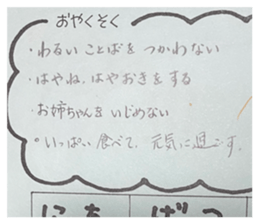 おやくそく
・わるい ことばを つかわない
・はやね、はやおきを する
・お姉ちゃんを いじめない
・いっぱい 食べて、元気に 過ごす。
にち げつ